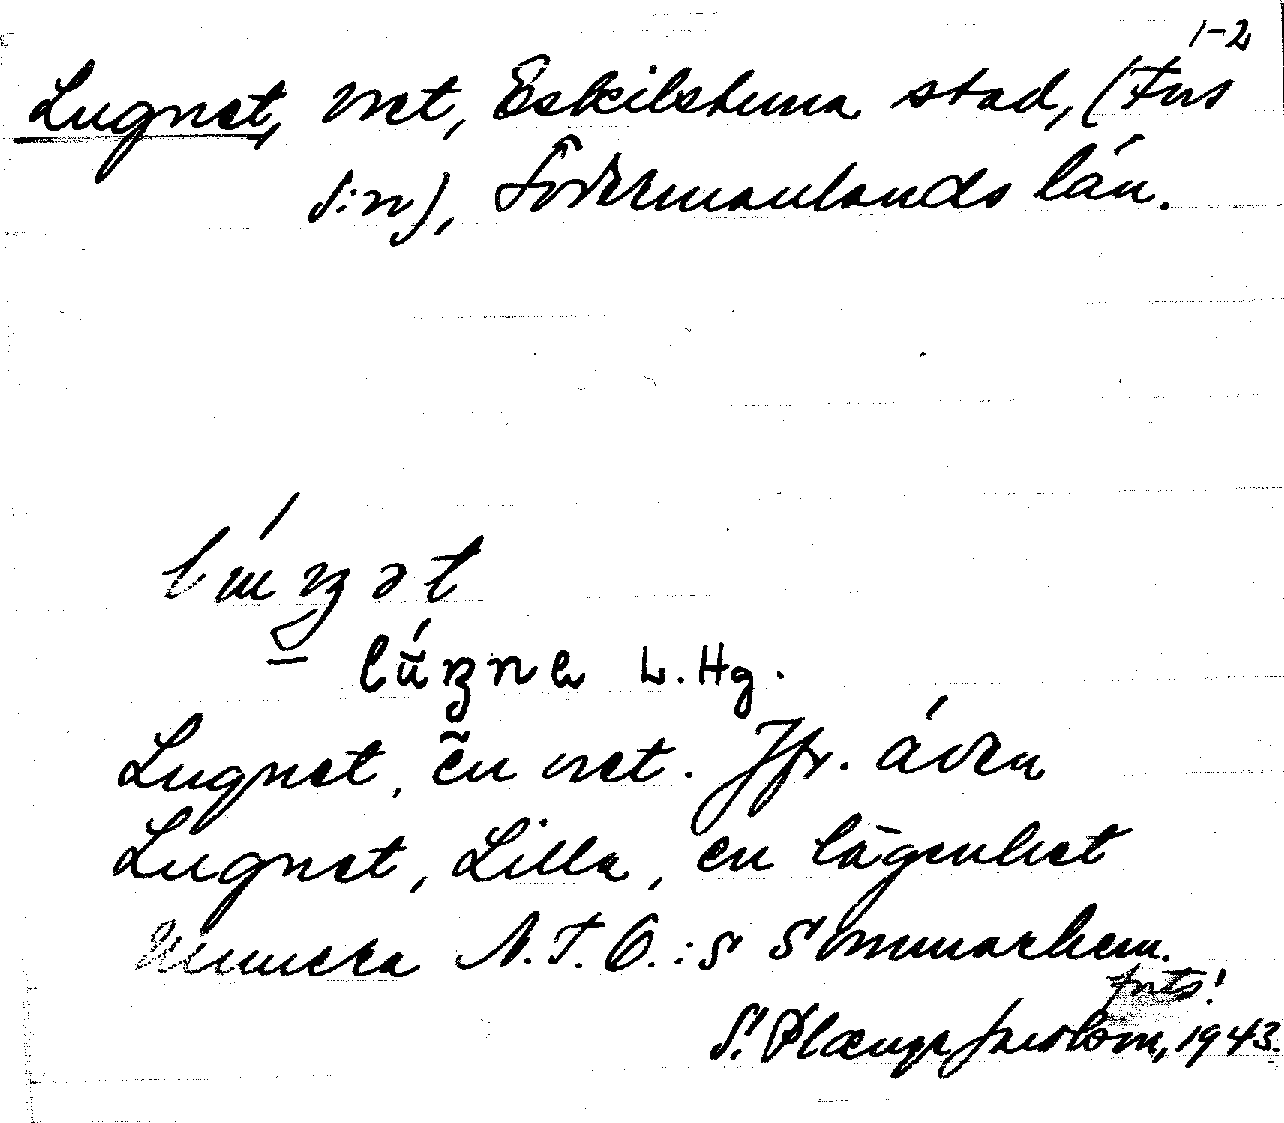 1-2
Lugnet, vret, Eskilstuna stad, (Fors
s:n), Södermanlands län.
lúŋət
lúŋnə L. Hg.
Lugnet, en vret. Jfr. även
Lugnet, Lilla, en lägenhet
Numera N.T.O.:s Sommarhem.
forts!
S. 1943.